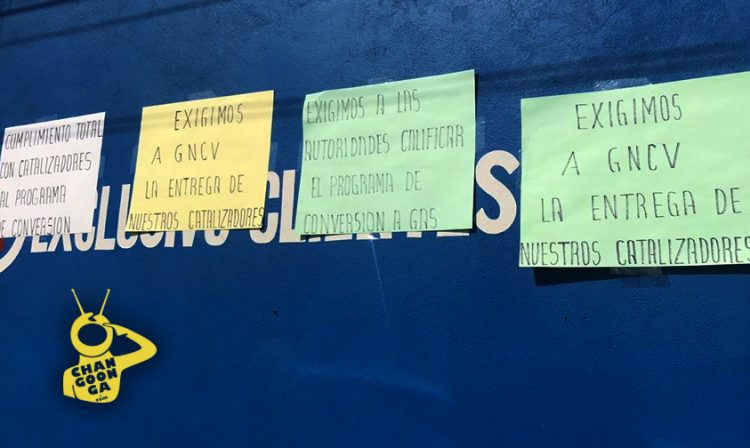 CUMPLIMIENTO TOTAL
CON CATALIZADORES
AL PROGRAMA
DE CONVERSION
EXIGIMOS
A GNCV
LA ENTREGA DE
NUESTROS CATALIZADORES
EXIGIMOS A LAS
AUTORIDADES CALIFICAR
EL PROGRAMA DE
CONVERSION A GAS
EXIGIMOS
A GNCV
LA ENTREGA DE
NUESTROS CATALIZADORES
EXCLUSIVO CLIENTES
CHAN
GOON
GA
.com